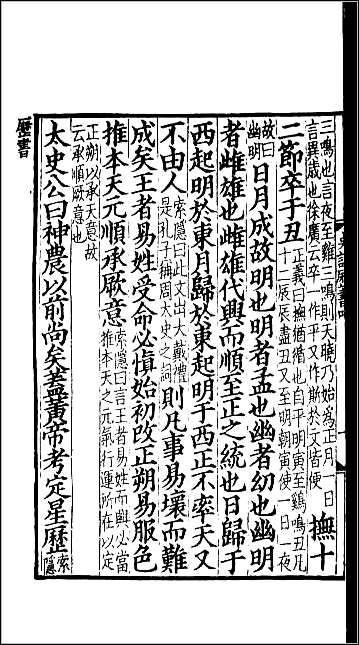 三鳴也言夜至雞三鳴則天曉乃始為正月一日
言異歲也徐廣云卒一作平又作斯於文皆便
撫十
二節卒于丑
正義曰撫猶循也自平明寅至雞鳴丑凡
十二辰辰盡丑又至明朝寅使日一夜
故曰
幽明
日月成故明也明者孟也幽者幼也幽明
者雌雄也雌雄代興而順至正之統也日歸于
西起明於東月歸於東起明于西正不率天又
不由人
索隱曰此文出大戴禮
是孔子稱周太史之詞
則凡事易壞而難
成矣王者易姓受命必慎始初改正朔易服色
推本天元順承厥意
索隱曰言王者易姓而興必當
推本天之元氣行運所在以定
正朔以承天意故
云承順厥意也
太史公曰神農以前尚矣蓋黃帝考定星曆
索
隱
曆書